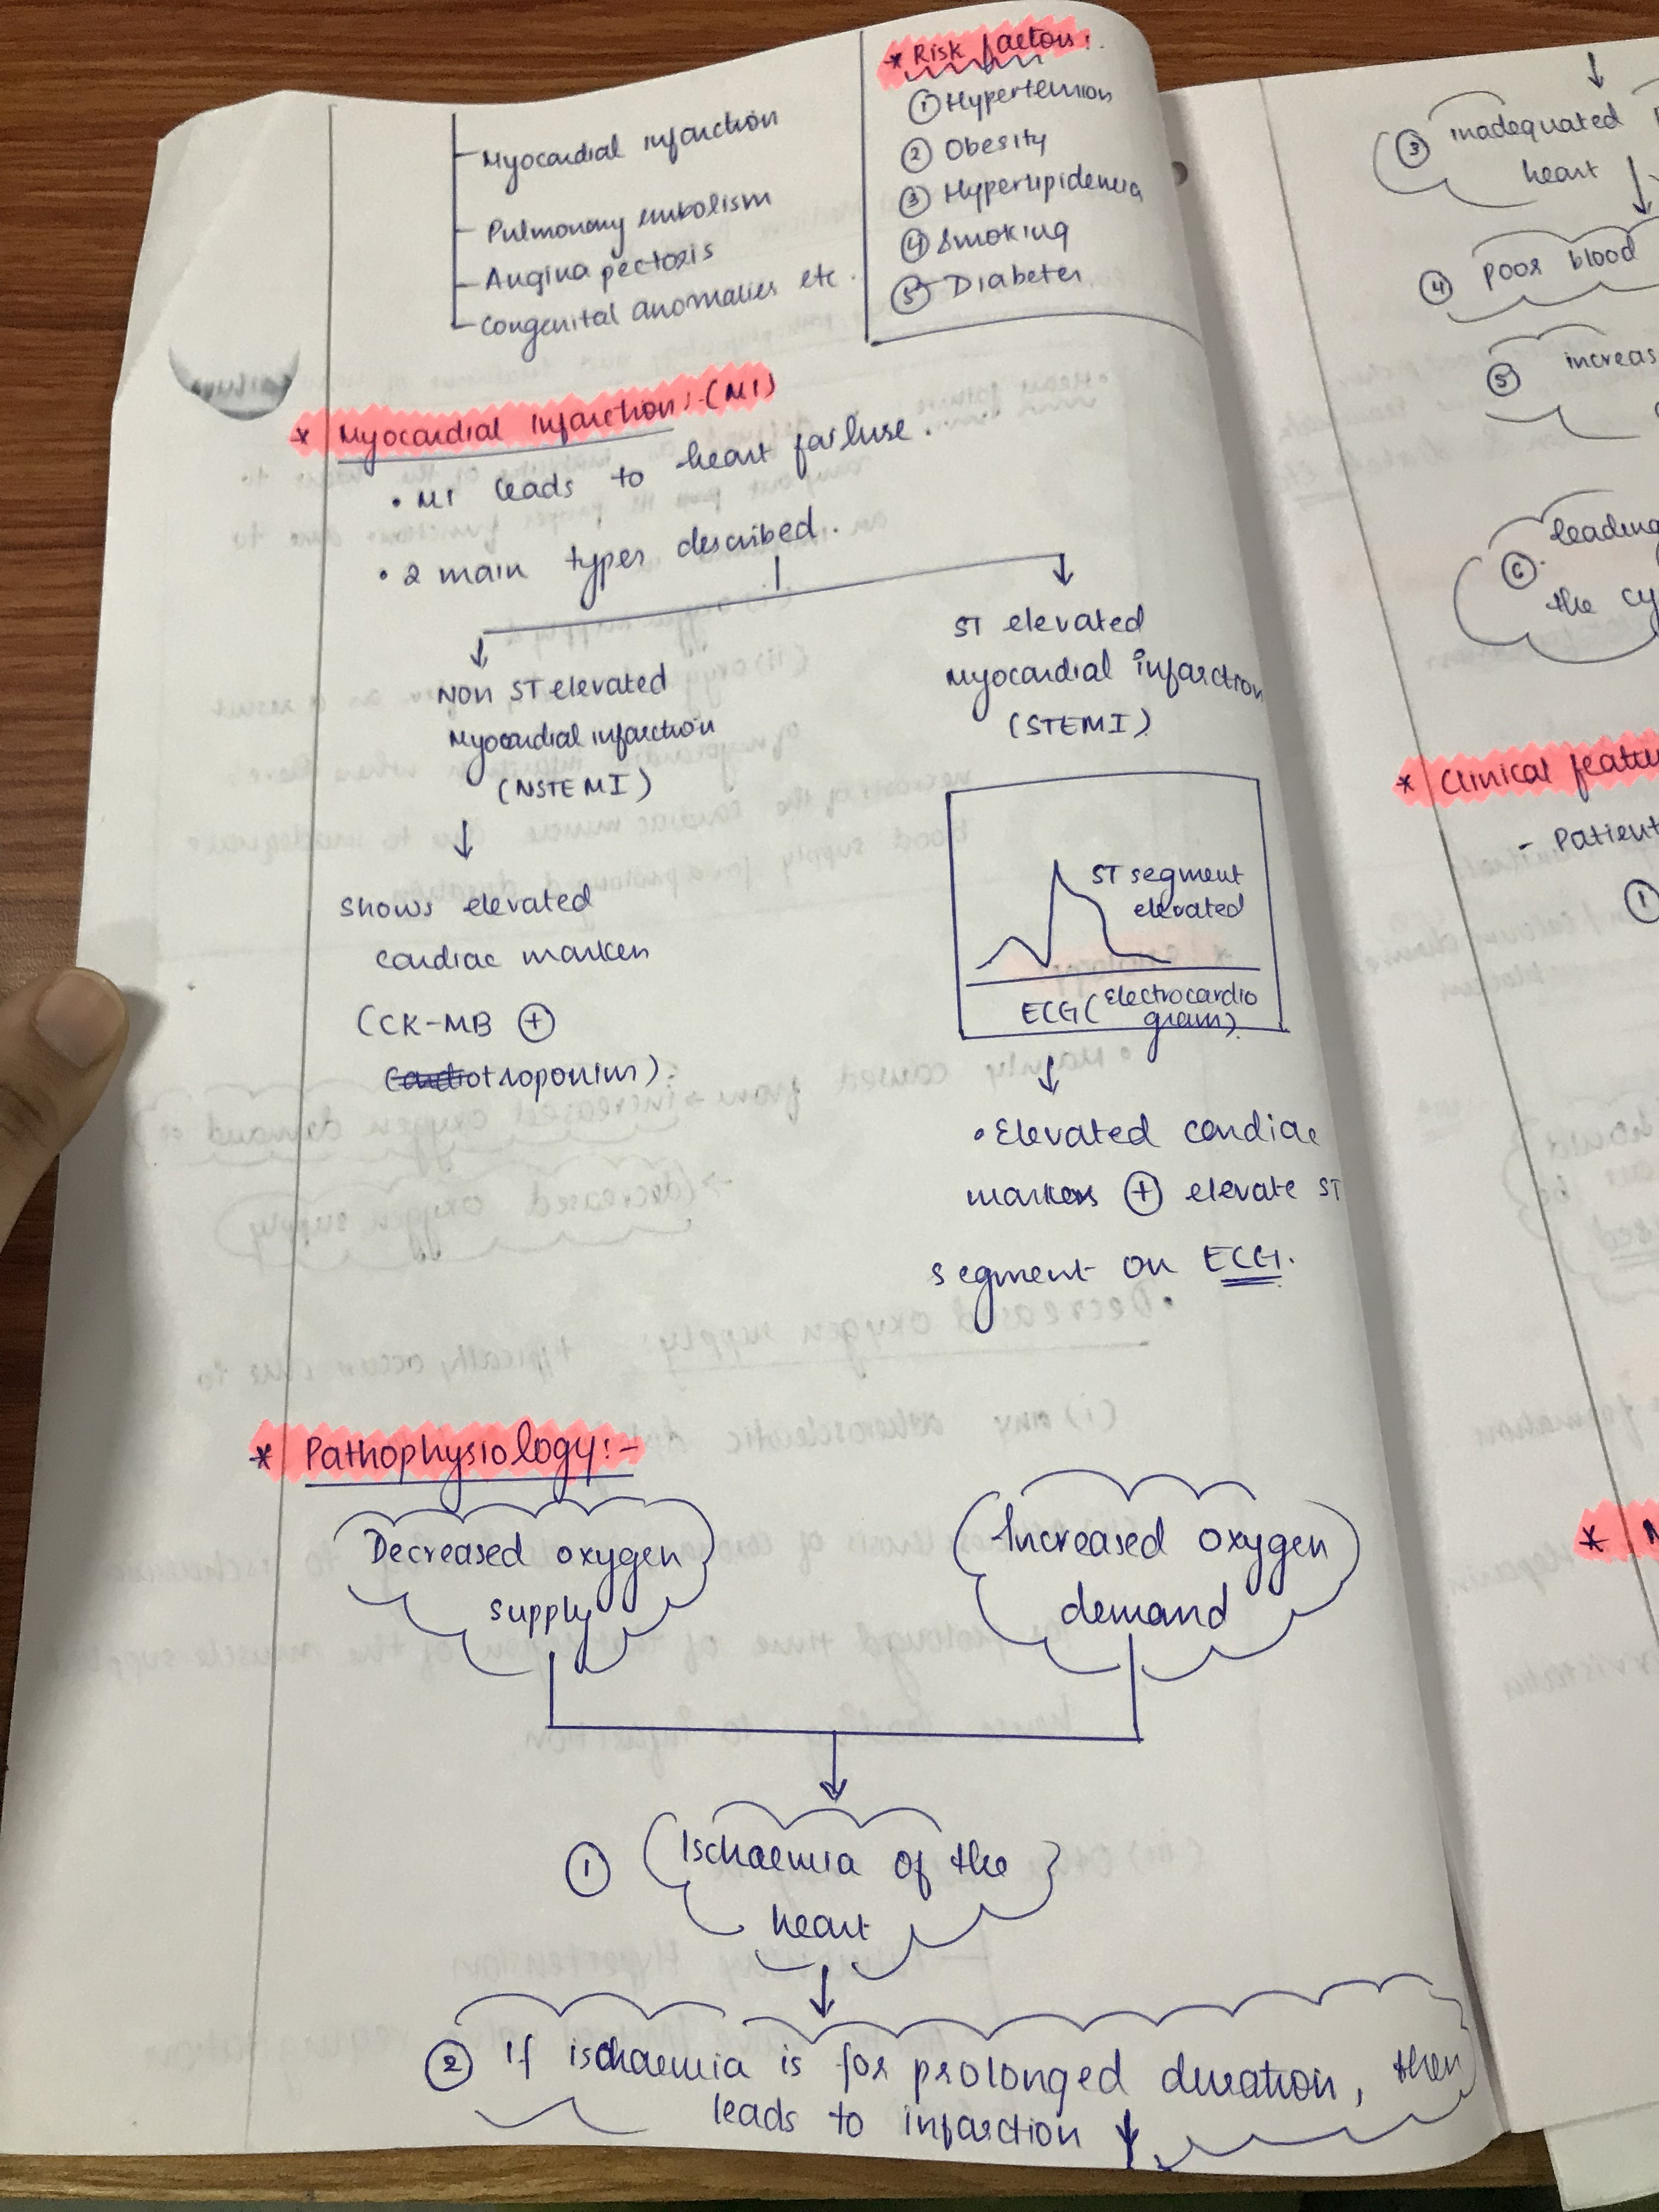 Myocardial infarction
Pulmonary embolism
Angina pectoris
Congenital anomalies etc.
* Risk factors:
① Hypertension
② Obesity
③ Hyperlipidemia
④ Smoking
⑤ Diabetes
* Myocardial Infarction:-(MI)
• MI leads to heart failure.
• 2 main types described.
Non ST elevated
Myocardial infarction
(NSTEMI)
shows elevated
cardiac markers
(CK-MB ⊕
troponins).
ST elevated
Myocardial infarction
(STEMI)
ST segment
elevated
ECG (Electrocardio
gram)
• Elevated cardiac
markers ⊕ elevate ST
segment on ECG.
* Pathophysiology:-
Decreased oxygen
supply
Increased oxygen
demand
① Ischaemia of the
heart
② If ischaemia is for prolonged duration, then
leads to infarction
③ inadequated
heart
④ poor blood
⑤ increas
⑥ leading
the cy
* Clinical featu
- Patient
①
*